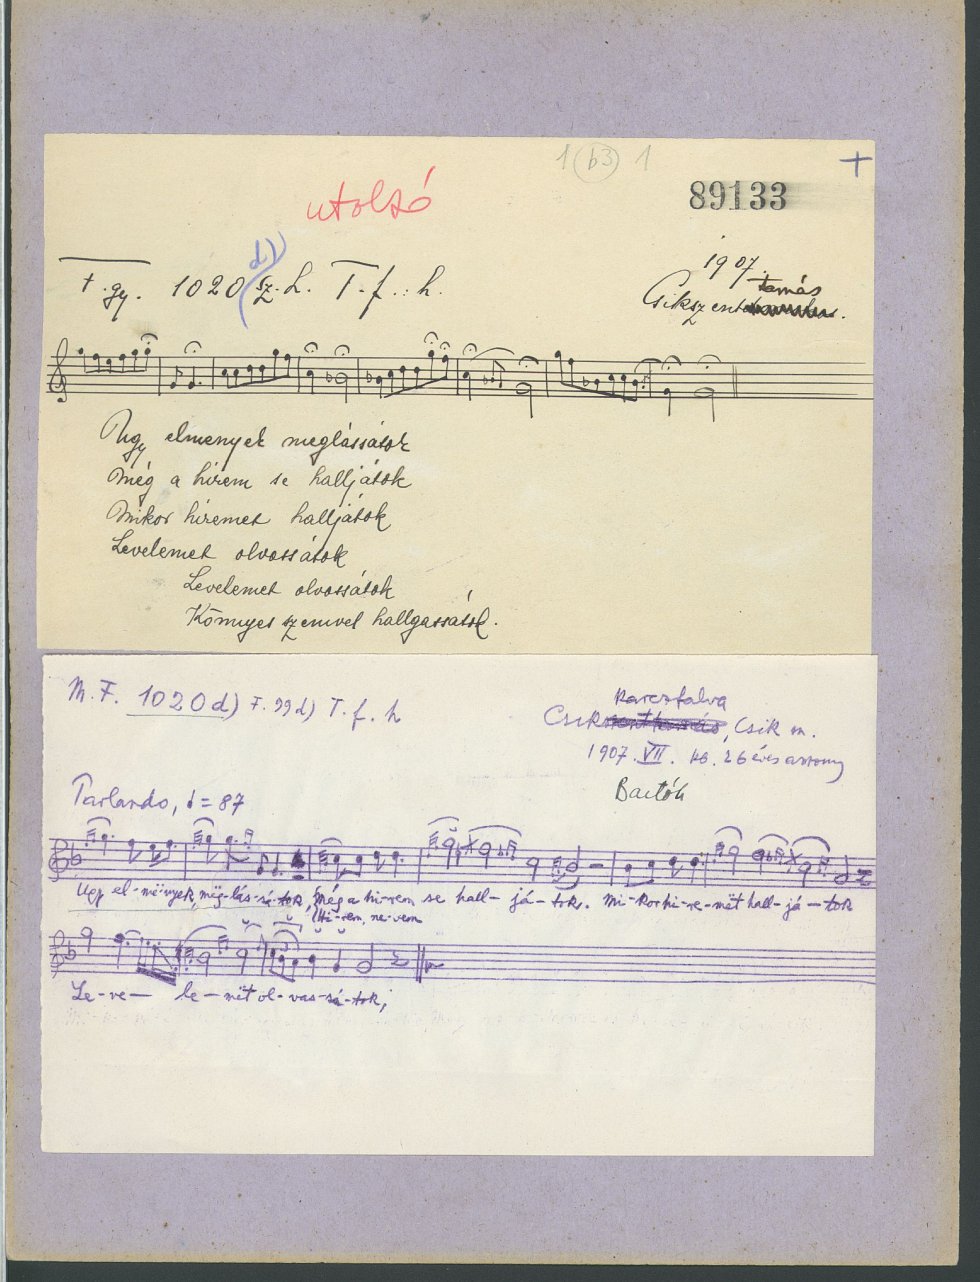 1 (b3) 1
+
utolsó
89133
F. gy. 1020 d) sz. h. T. f. h.
1907.
Csikszenttamás.
Ugy elmenyek meglássátok
Még a hirem se halljátok
Mikor hiremet halljátok
Levelemet olvossátok
Levelemet olvossátok
Könnyes szemvel hallgassátok.
M. F. 1020 d) F. 99 d) T. f. h
karczfalva
Csik, Csik m.
1907. VII. 26 éves asszony
Bartók
Parlando, = 87
Ugy el-më-nyek, mëg-lás-sá-tok, Még a hi-rem se hall-já-tok. Mi-kor hi-re-mët hall-já-tok
Hi-rem, ne-vem
Le-ve- le-mët ol-vas-sá-tok,